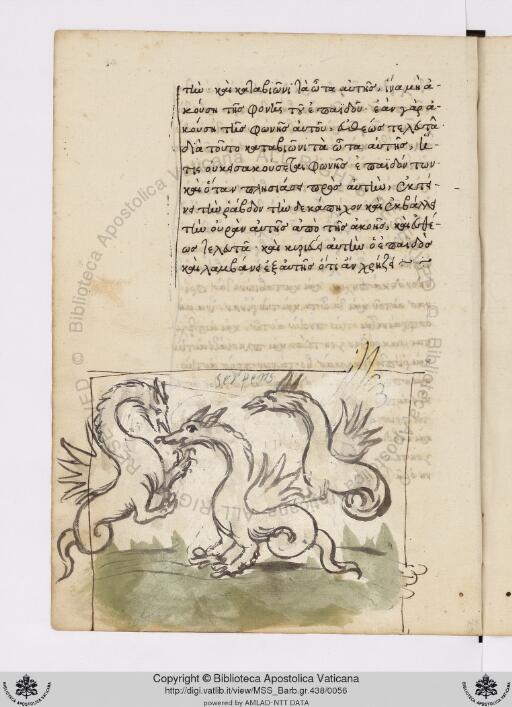 τὴν καὶ καταβιῶνι τὰ ὦτα αὐτῆς, ἵνα μὴ ἀ-
κούση τῆς φονῆς τοῦ ἐπαϊδοῦ· ἐὰν γὰρ ἀ-
κούση τῆς φωνῆς αὐτοῦ, εὐθέως τελευτᾶ
διὰ τοῦτο καταβιῶνι τὰ ὦτα αὐτῆς,
τις οὐκ εἰσακούσεται φωνῆς ἐπαϊδόντων
καὶ ὅταν πλησιάσει πρὸς αὐτὴν, ἐκτεί-
νει τὴν ῥάβδον τὴν δεκάπηχον καὶ ἐκβάλλει
τὴν οὐρὰν αὐτῆς ἀπο τῆς ἀκοῆς, καὶ εὐθέ-
ως τελευτᾶ· καὶ αὐτὴν ὁ ἐπαϊδὸς
καὶ λαμβάνει ἐξ αὐτῆς ὅτι ἂν χρήζει
serpens
Copyright © Biblioteca Apostolica Vaticana
http://digi.vatlib.it/view/MSS_Barb.gr.438/0056
powered by AMLAD-NTT DATA